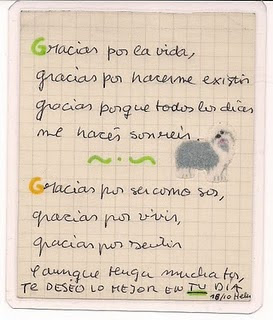 Gracias por la vida,
gracias por hacerme existir
gracias porque todos los días
me hacés sonreir.
Gracias por ser como sos,
gracias por vivir,
gracias por sentir
y aunque tenga mucha tos,
TE DESEO LO MEJOR EN TU DIA
18/10